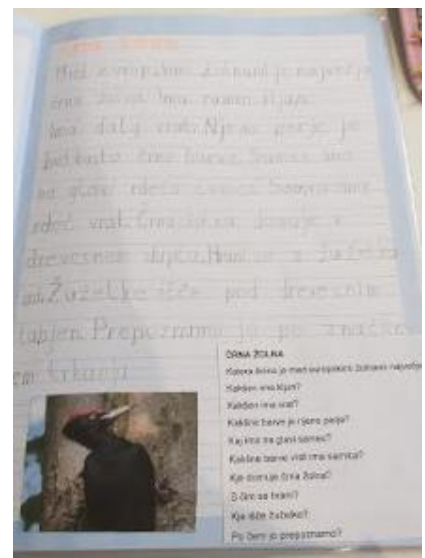 Med evropskimi žolnami je največja
črna žolna. Ima raven kljun.
Ima dalj vrat. Njeno perje je
črne barve. Samec ima
na glavi rdečo
rdeč vrat. Črna žolna domuje v
drevesnem duplu. Hrani se z žuželka
mi. Žuželke išče pod drevesnim
lubjem. Prepoznamo jo po značiln
em trkanju.
ČRNA ŽOLNA
Katera žolna je med evropskimi žolnami največja
Kakšen ima kljun?
Kakšen ima vrat?
Kakšne barve je njeno perje?
Kaj ima na glavi samec?
Kakšne barve vrat ima samica?
Kje domuje črna žolna?
S čim se hrani?
Kje išče žuželke?
Po čem jo prepoznamo?